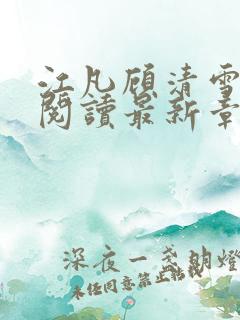 江凡顾清雪
閱讀最新章
深夜一盞明燈
未经同意禁止转载